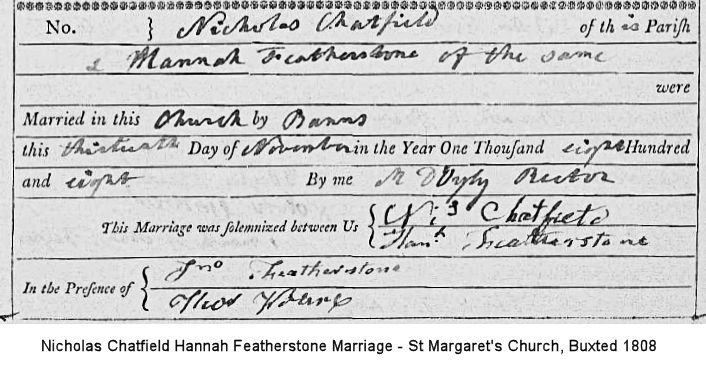 No. } Nicholas Chatfield of this Pariſh
& Hannah Featherstone of the same
were
Married in this Church by Banns
this thirteenth Day of November in the Year One Thouſand eight Hundred
and eight By me Rector
This Marriage was ſolemnized between Us { Nis Chatfield
Hanh Featherstone
In the Preſence of { Jno Featherstone
Thos Young
Nicholas Chatfield Hannah Featherstone Marriage - St Margaret's Church, Buxted 1808